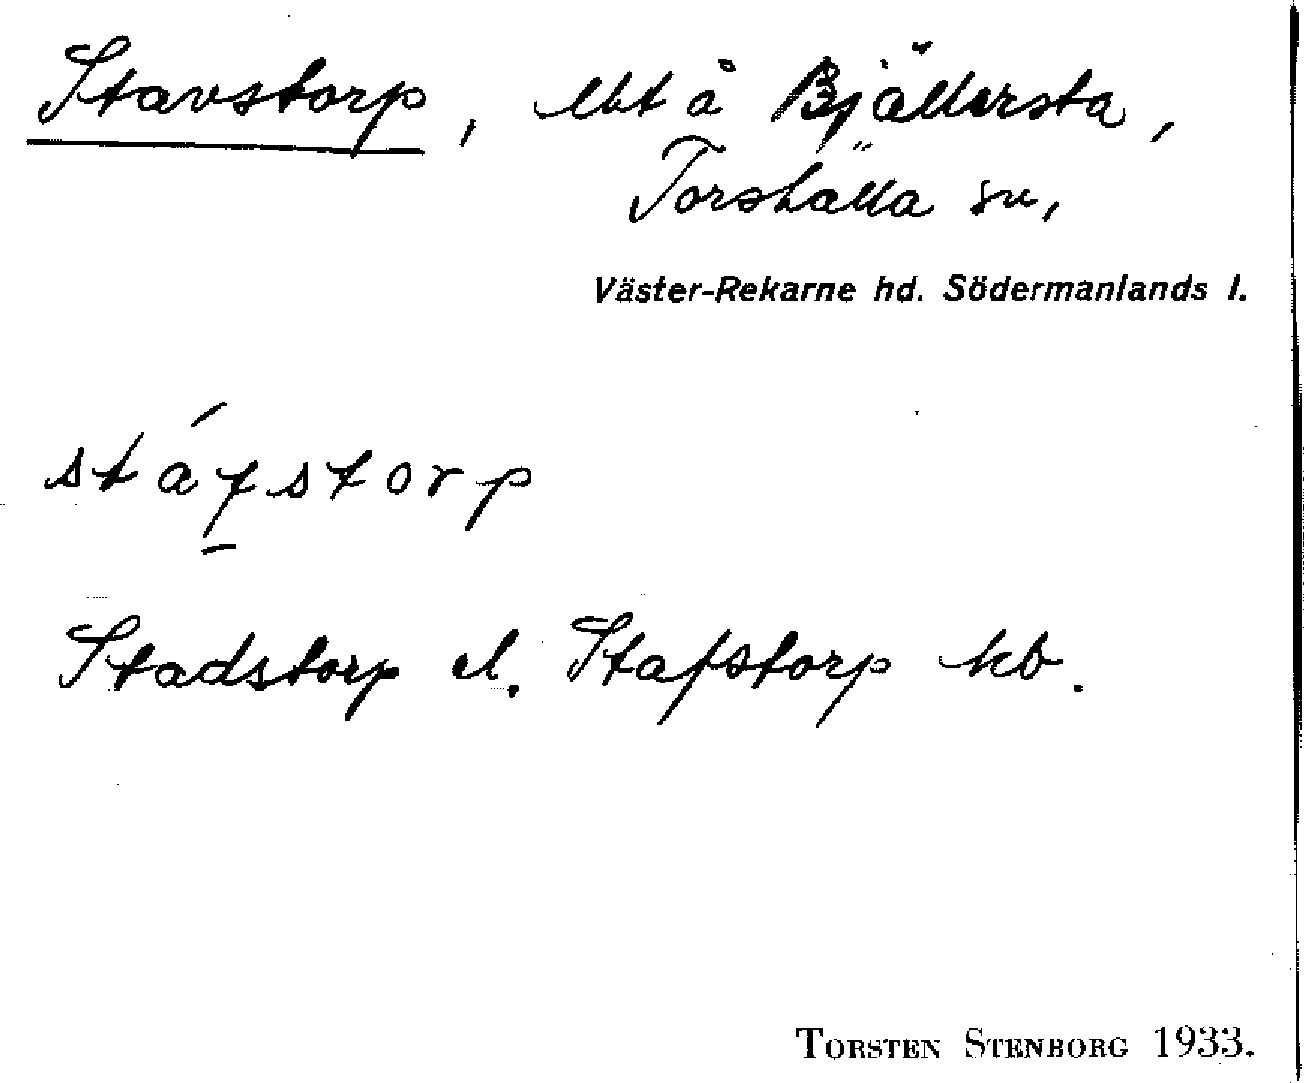 Stavstorp, lht å Bjällersta,
Torshälla sn,
Väster-Rekarne hd. Södermanlands l.
stáf̱storp
Stadstorp el. Stafstorp kb.
TORSTEN STENBORG 1933.